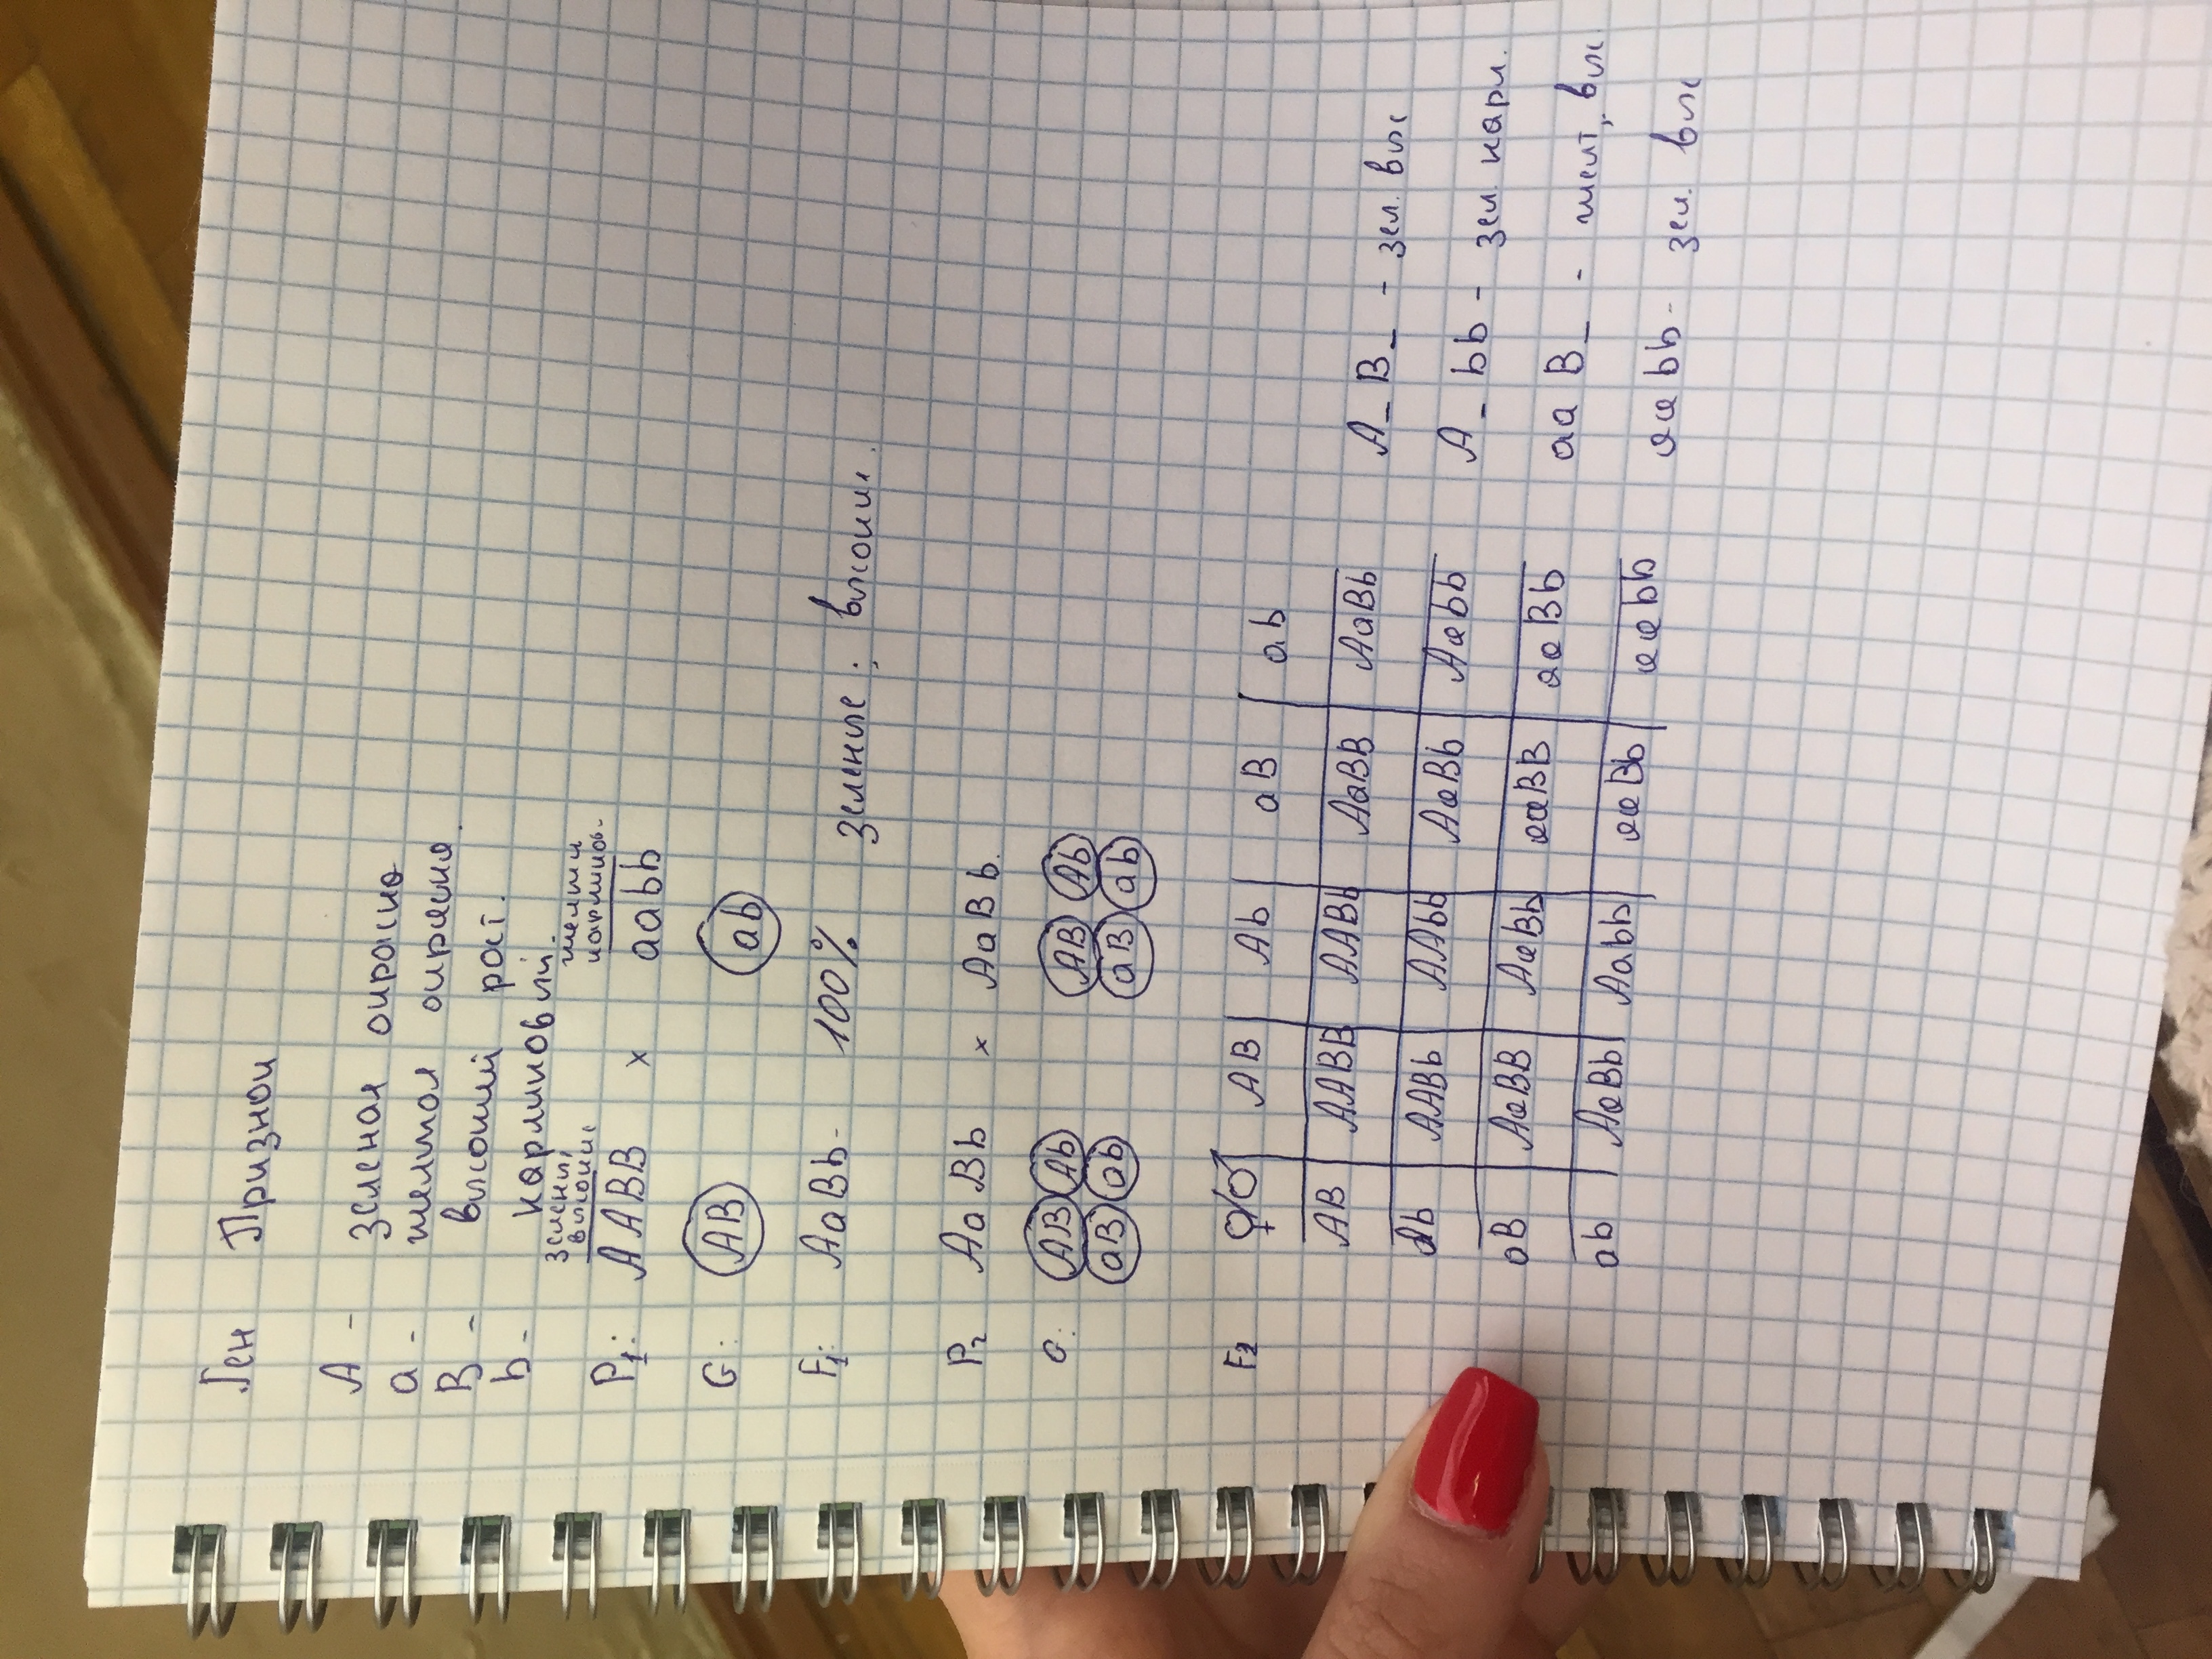 Ген Признак
A - зеленая окраска
a - желтая окраска.
B - высокий рост.
b - карликовый.
зелены, желты
высокие карликов-
P1: AABB × aabb
G: AB ab
F1: AaBb- 100% зеленые; высокие.
P2 AaBb × AaBb.
G: AB Ab AB Ab
aB ab aB ab
F2 ♀/♂ AB Ab aB ab
AB AABB AABb AaBB AaBb A_B_ - зел. выс
Ab AABb AAbb AaBb Aabb A_bb - зел. карл.
aB AaBB AaBb aaBB aaBb aaB_ - желт, выс
ab AaBb Aabb aaBb aabb aabb- зел. выс